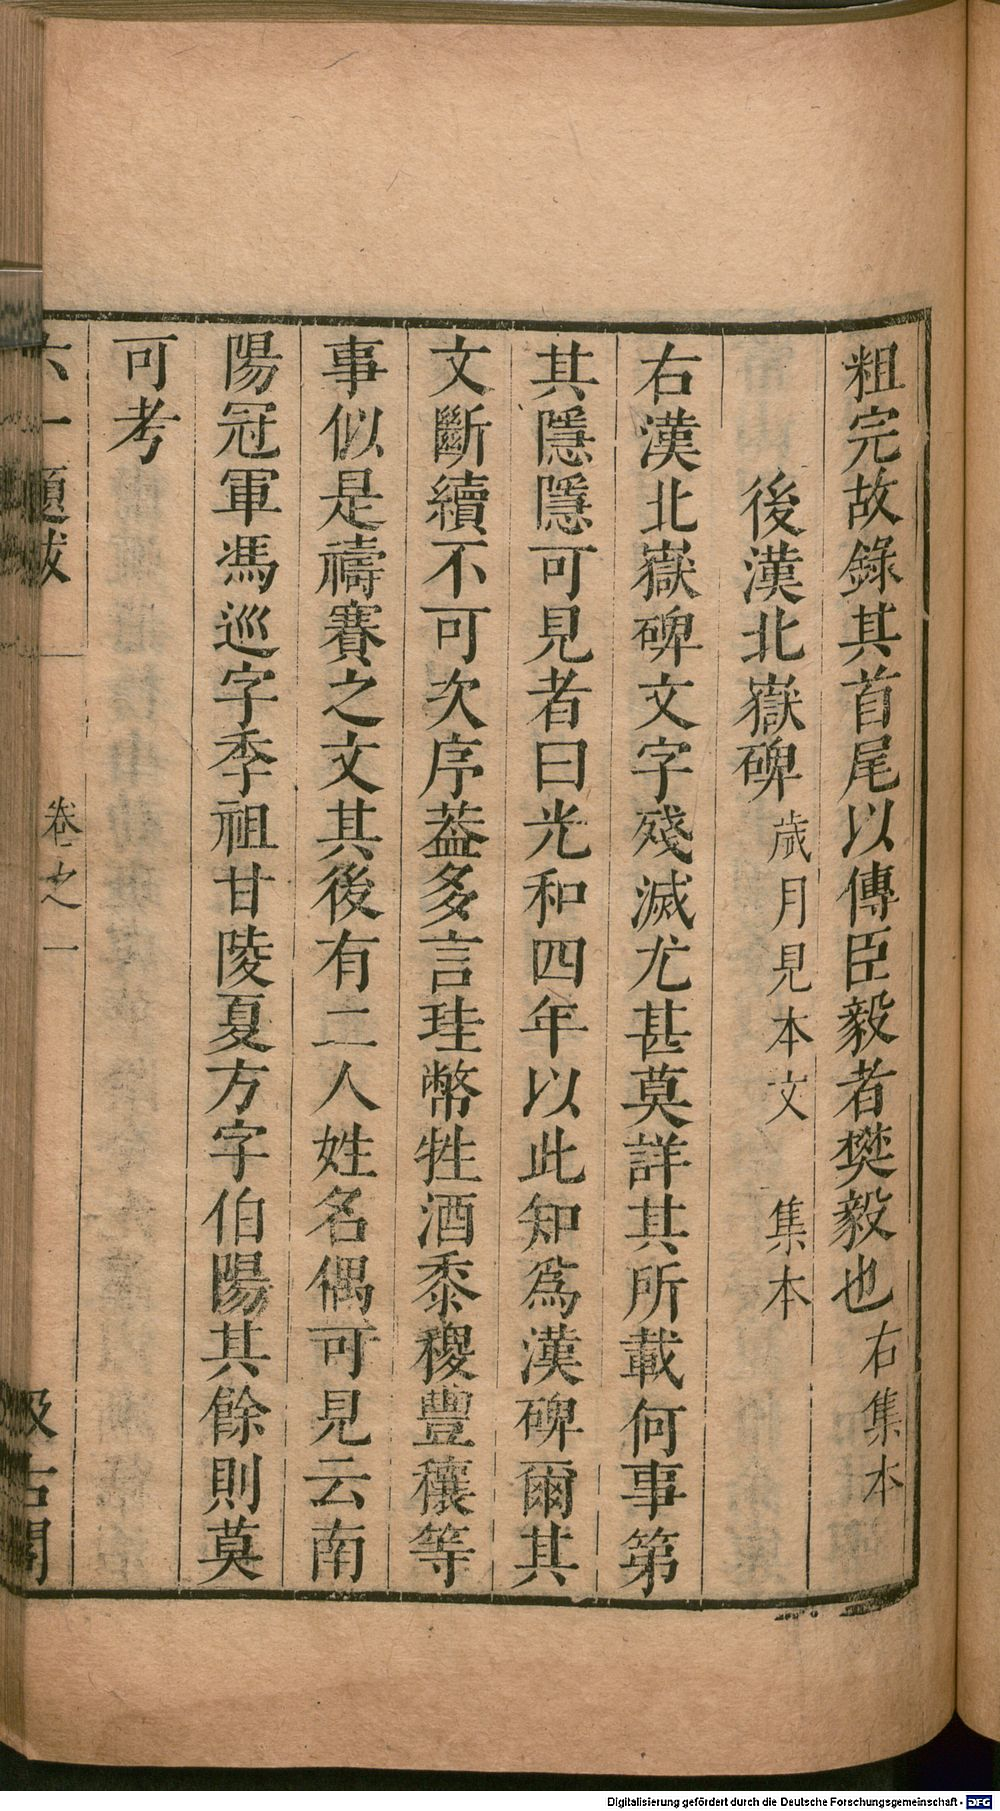 粗完故錄其首尾以傳臣毅者樊毅也右集本
後漢北嶽碑歲月見本文 集本
右漢北嶽碑文字殘滅尤甚莫詳其所載何事第
其隱隱可見者曰光和四年以此知爲漢碑爾其
文斷續不可次序葢多言珪幣牲酒黍稷豐穰等
事似是禱賽之文其後有二人姓名偶可見云南
陽冠軍馮巡字季祖甘陵夏方字伯陽其餘則莫
可考
六一題跋 卷之一 汲古閣
Digitalisierung gefördert durch die Deutsche Forschungsgemeinschaft - DFG